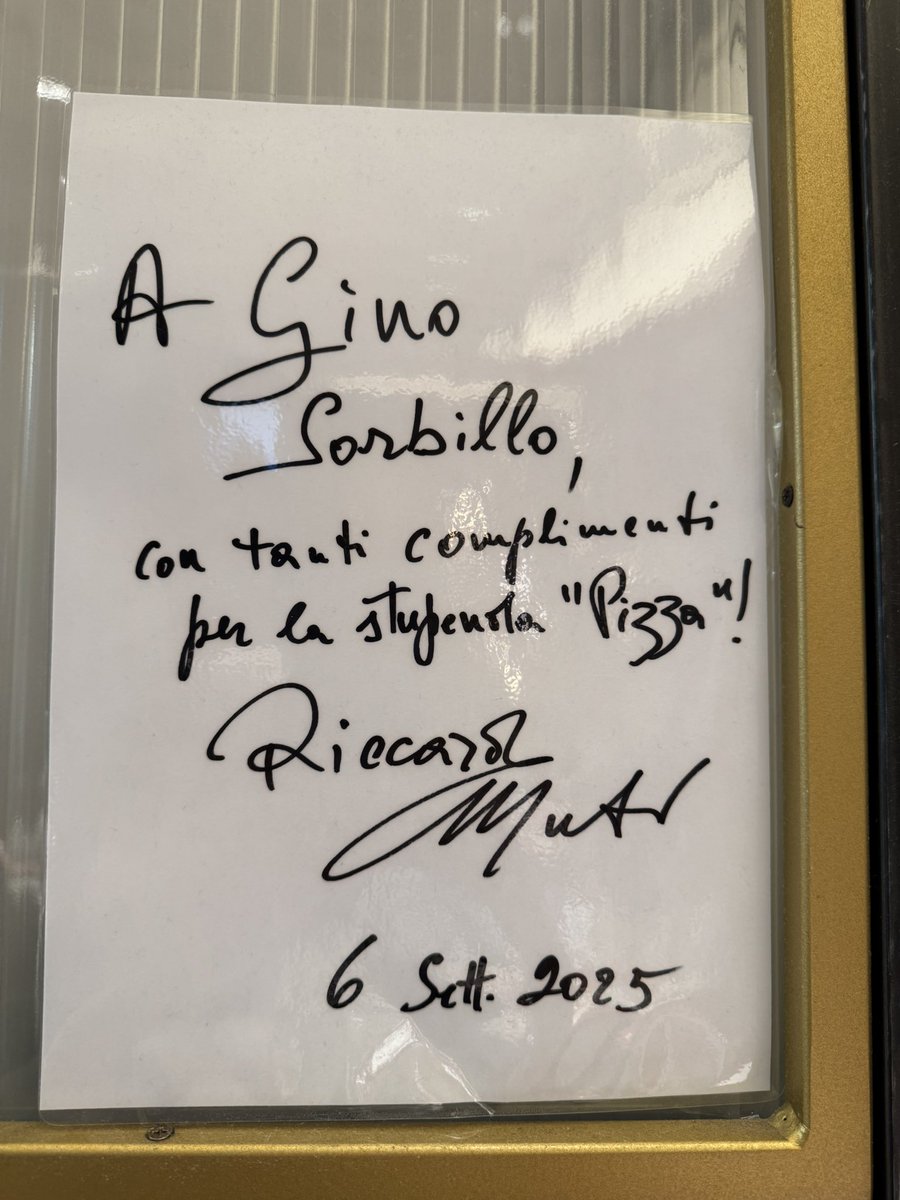 A Gino
Sorbillo,
con tanti complimenti
per la stupenda "Pizza"!
Riccardo
Muti
6 Sett. 2025